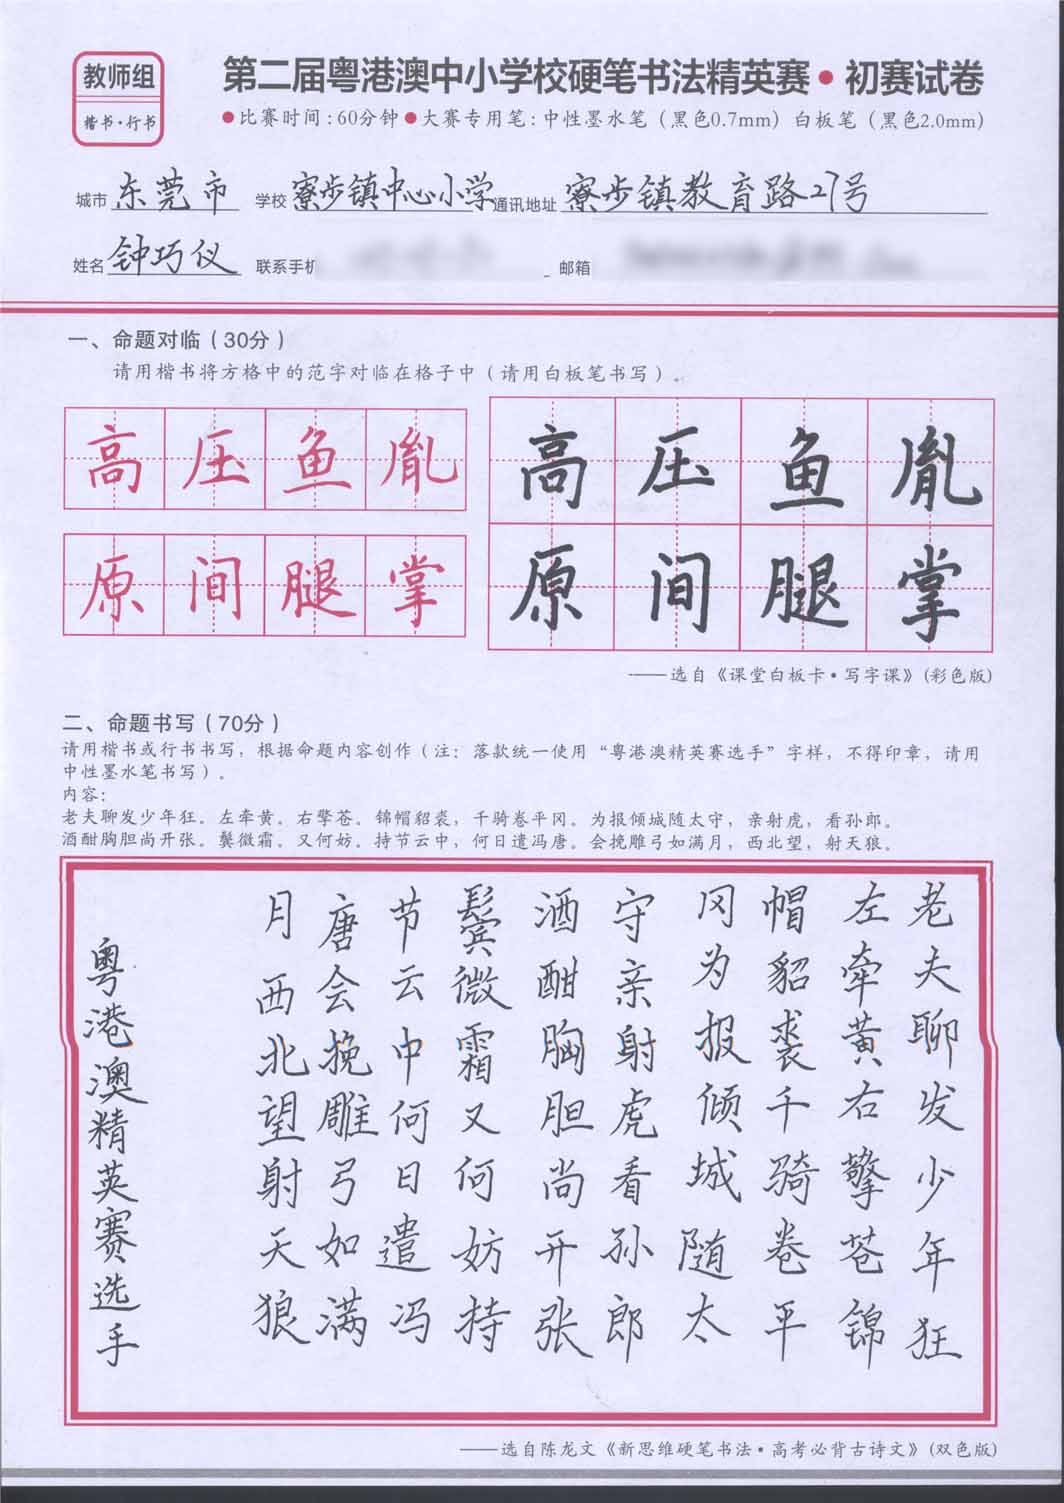 教师组
楷书·行书
第二届粤港澳中小学校硬笔书法精英赛·初赛试卷
●比赛时间:60分钟●大赛专用笔:中性墨水笔（黑色0.7mm）白板笔（黑色2.0mm）
城市 东莞市 学校 寮步镇中心小学 通讯地址 寮步镇教育路27号
姓名 钟巧仪 联系手机 邮箱
一、命题对临（30分）
请用楷书将方格中的范字对临在格子中（请用白板笔书写）。
高压鱼胤
原间腿掌
高压鱼胤
原间腿掌
——选自《课堂白板卡·写字课》(彩色版)
二、命题书写（70分）
请用楷书或行书书写，根据命题内容创作（注：落款统一使用“粤港澳精英赛选手”字样，不得印章，请用
中性墨水笔书写）。
内容：
老夫聊发少年狂。左牵黄。右擎苍。锦帽貂裘，千骑卷平冈。为报倾城随太守，亲射虎，看孙郎。
酒酣胸胆尚开张。鬓微霜。又何妨。持节云中，何日遣冯唐。会挽雕弓如满月，西北望，射天狼。
老夫聊发少年狂
左牵黄右擎苍锦
帽貂裘千骑卷平
冈为报倾城随太
守亲射虎看孙郎
酒酣胸胆尚开张
鬓微霜又何妨持
节云中何日遣冯
唐会挽雕弓如满
月西北望射天狼
粤港澳精英赛选手
——选自陈龙文《新思维硬笔书法·高考必背古诗文》(双色版)